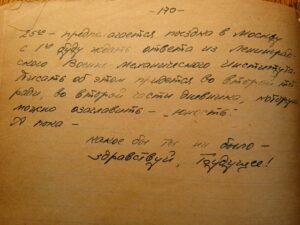 - 170 -
25го - предполагается поездка в Москву
с 1го буду ждать ответа из Ленинград-
ского Военно Механического Института.
Писать об этом придется во второй тет-
ради, во второй части дневника, которую
можно озаглавить - "Юность"
А пока -
какое бы ты ни было -
здравствуй, Будущее!